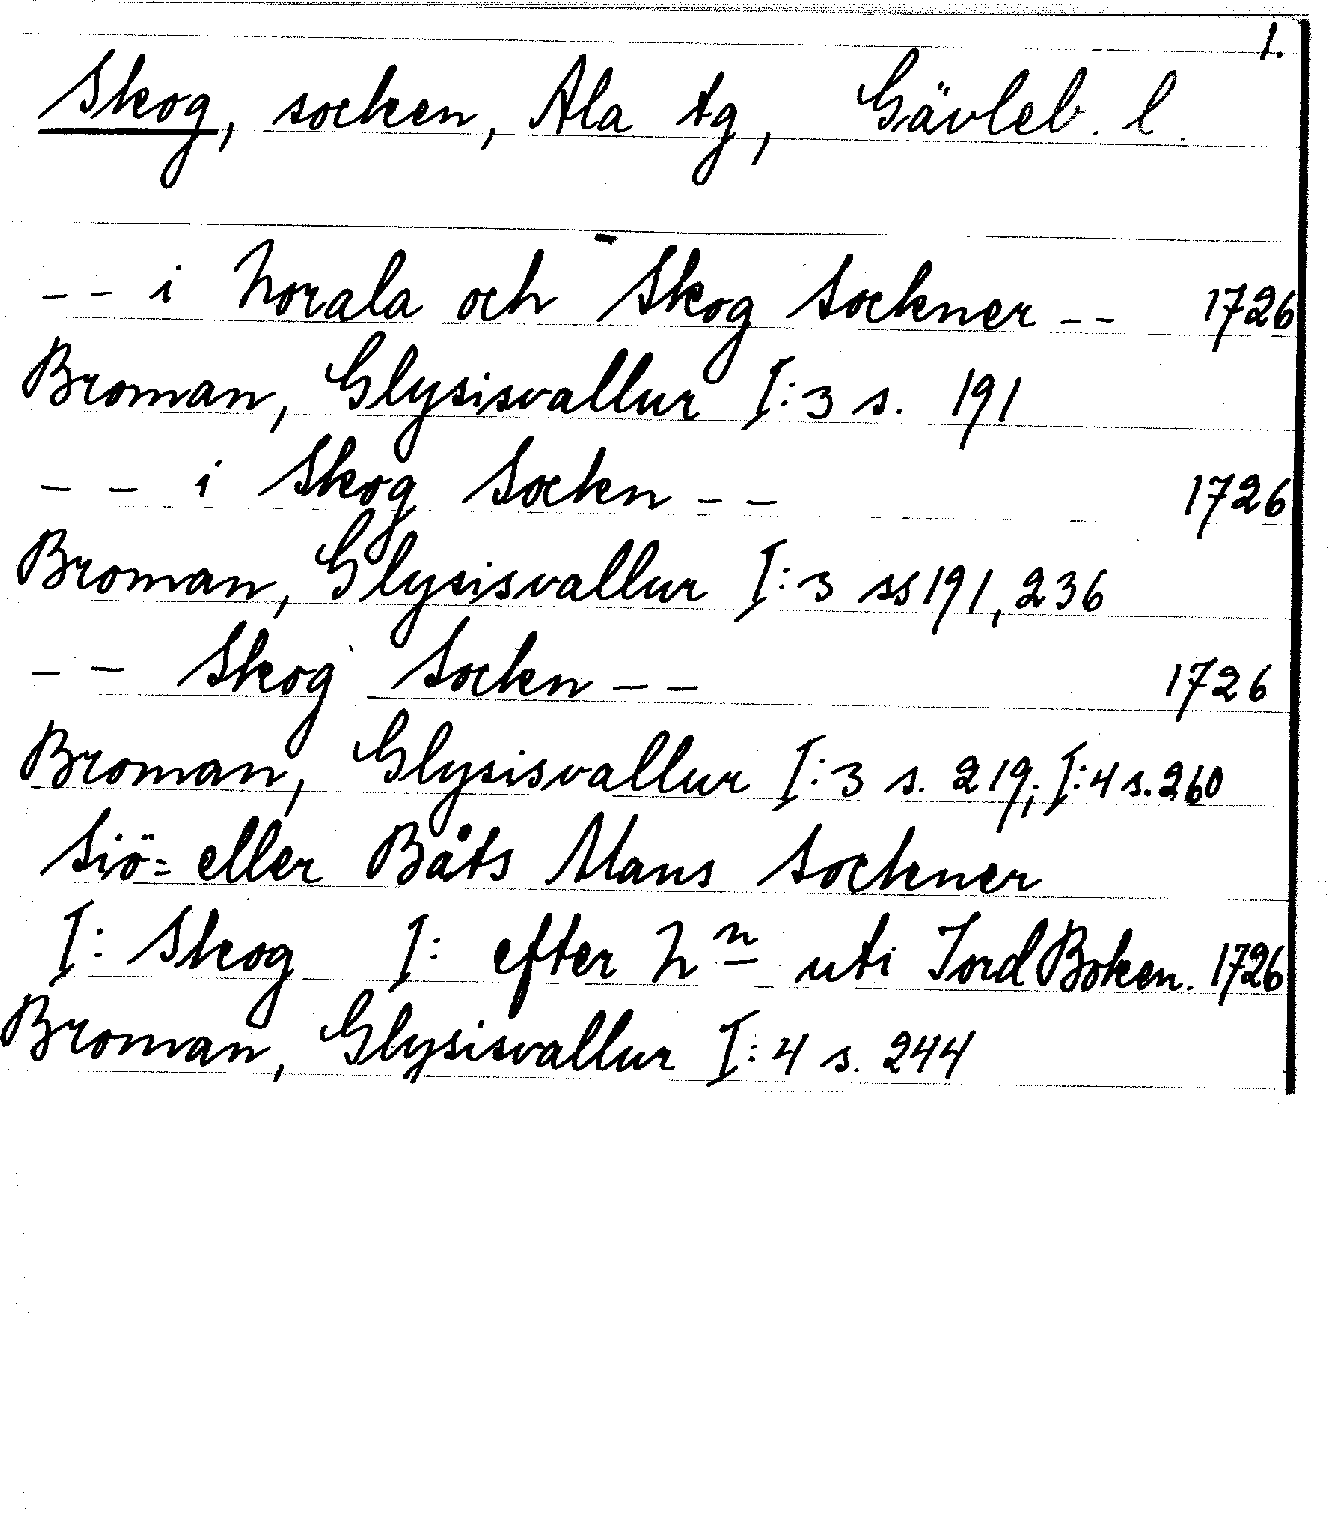 1.
Skog, socken, Ala tg, Gävleb. l.
-- i Norala och Skog Sockner -- 1726
Broman, Glysisvallur I:3 s. 191
-- i Skog Sockn -- 1726
Broman, Glysisvallur I:3 ss 191, 236
-- Skog Sockn -- 1726
Broman, Glysisvallur I:3 s. 219; I:4 s. 260
Siö= eller Båts Mans Sockner
I: Skog I: efter Nn uti Jord Boken. 1726
Broman, Glysisvallur I:4 s. 244